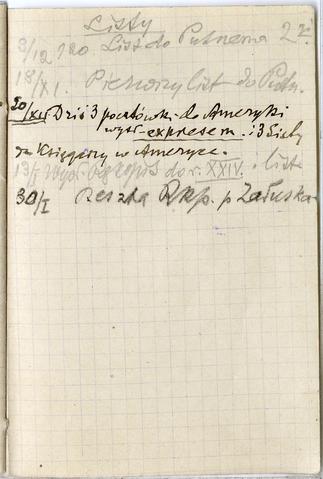 Listy
3/12 180 List do Putnema 2 ź.
18/XI. Pierwszy list do Putn.
30/XII Dziś 3 pocztówki do Ameryki
wysł. expresem i 3 listy
za Księgarzy w Ameryce.
13/I Wysł. Rękopis do r. XXIV. i list
30/I Reszta Rkp. p Załuska